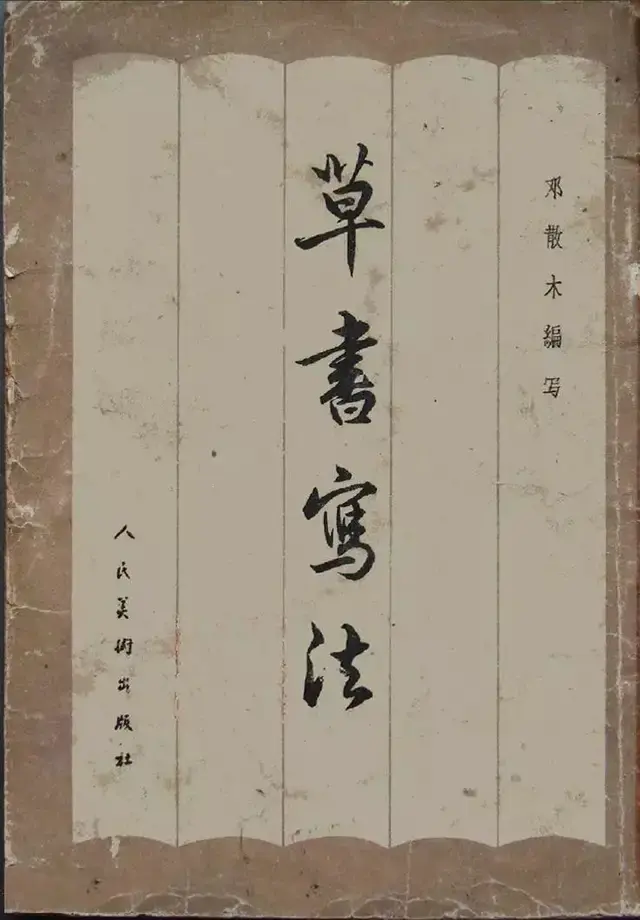 邓散木编写
草書寫法
人民美術出版社